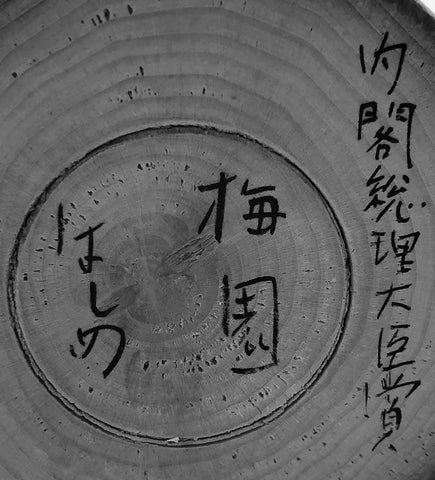 内閣総理大臣賞
梅園
はじめ